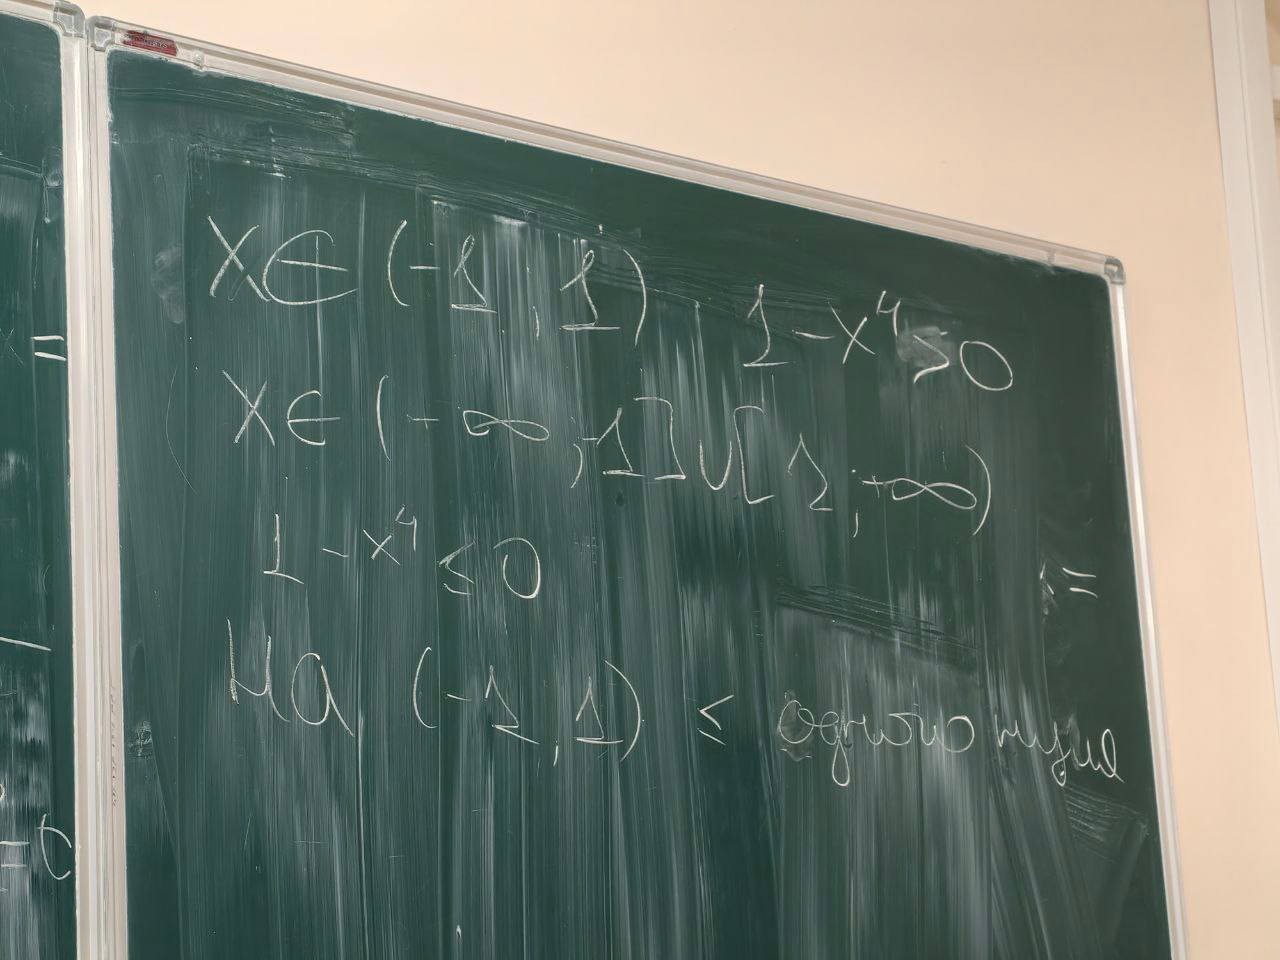 x =
=0
x ∈ (-1, 1) 1 - x⁴ > 0
x ∈ (-∞, -1] ∪ [1; +∞)
1 - x⁴ ≤ 0
=
На (-1, 1) ≤ одного нуля